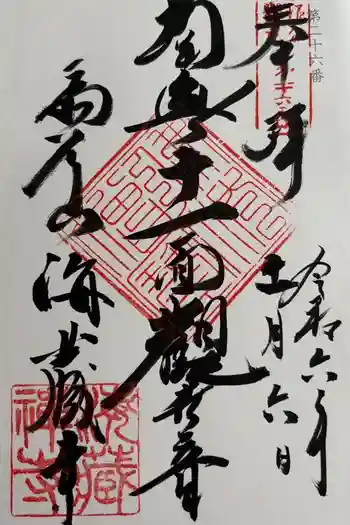 第二十六番
奉拝
令和六年
十一月六日
南無十一面観世音
扇谷山
海蔵寺
海藏
禅寺